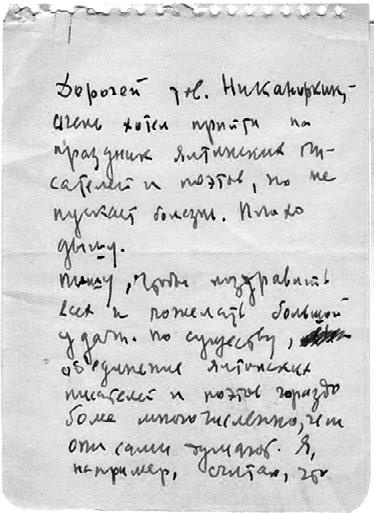 Дорогой тов. Никаноркин,-
очень хотел прийти на
праздник ялтинских пи-
сателей и поэтов, но не
пускает болезнь. Плохо
дышу.
Пишу, чтобы поздравить
всех и пожелать большой
удачи. По существу,
объединение ялтинских
писателей и поэтов гораздо
более многочисленно, чем
они сами думают. Я,
например, считаю, что